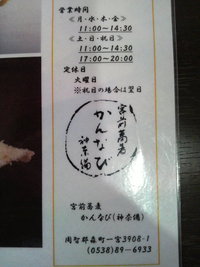 営業時間
<月・水・木・金>
11:00〜14:30
<土・日・祝日>
11:00〜14:30
17:00〜20:00
定休日
火曜日
※祝日の場合は翌日
宮前蕎麦
かんなび
神奈備
宮前蕎麦
かんなび(神奈備)
周智郡森町一宮3908-1
☎(0538)89-6933